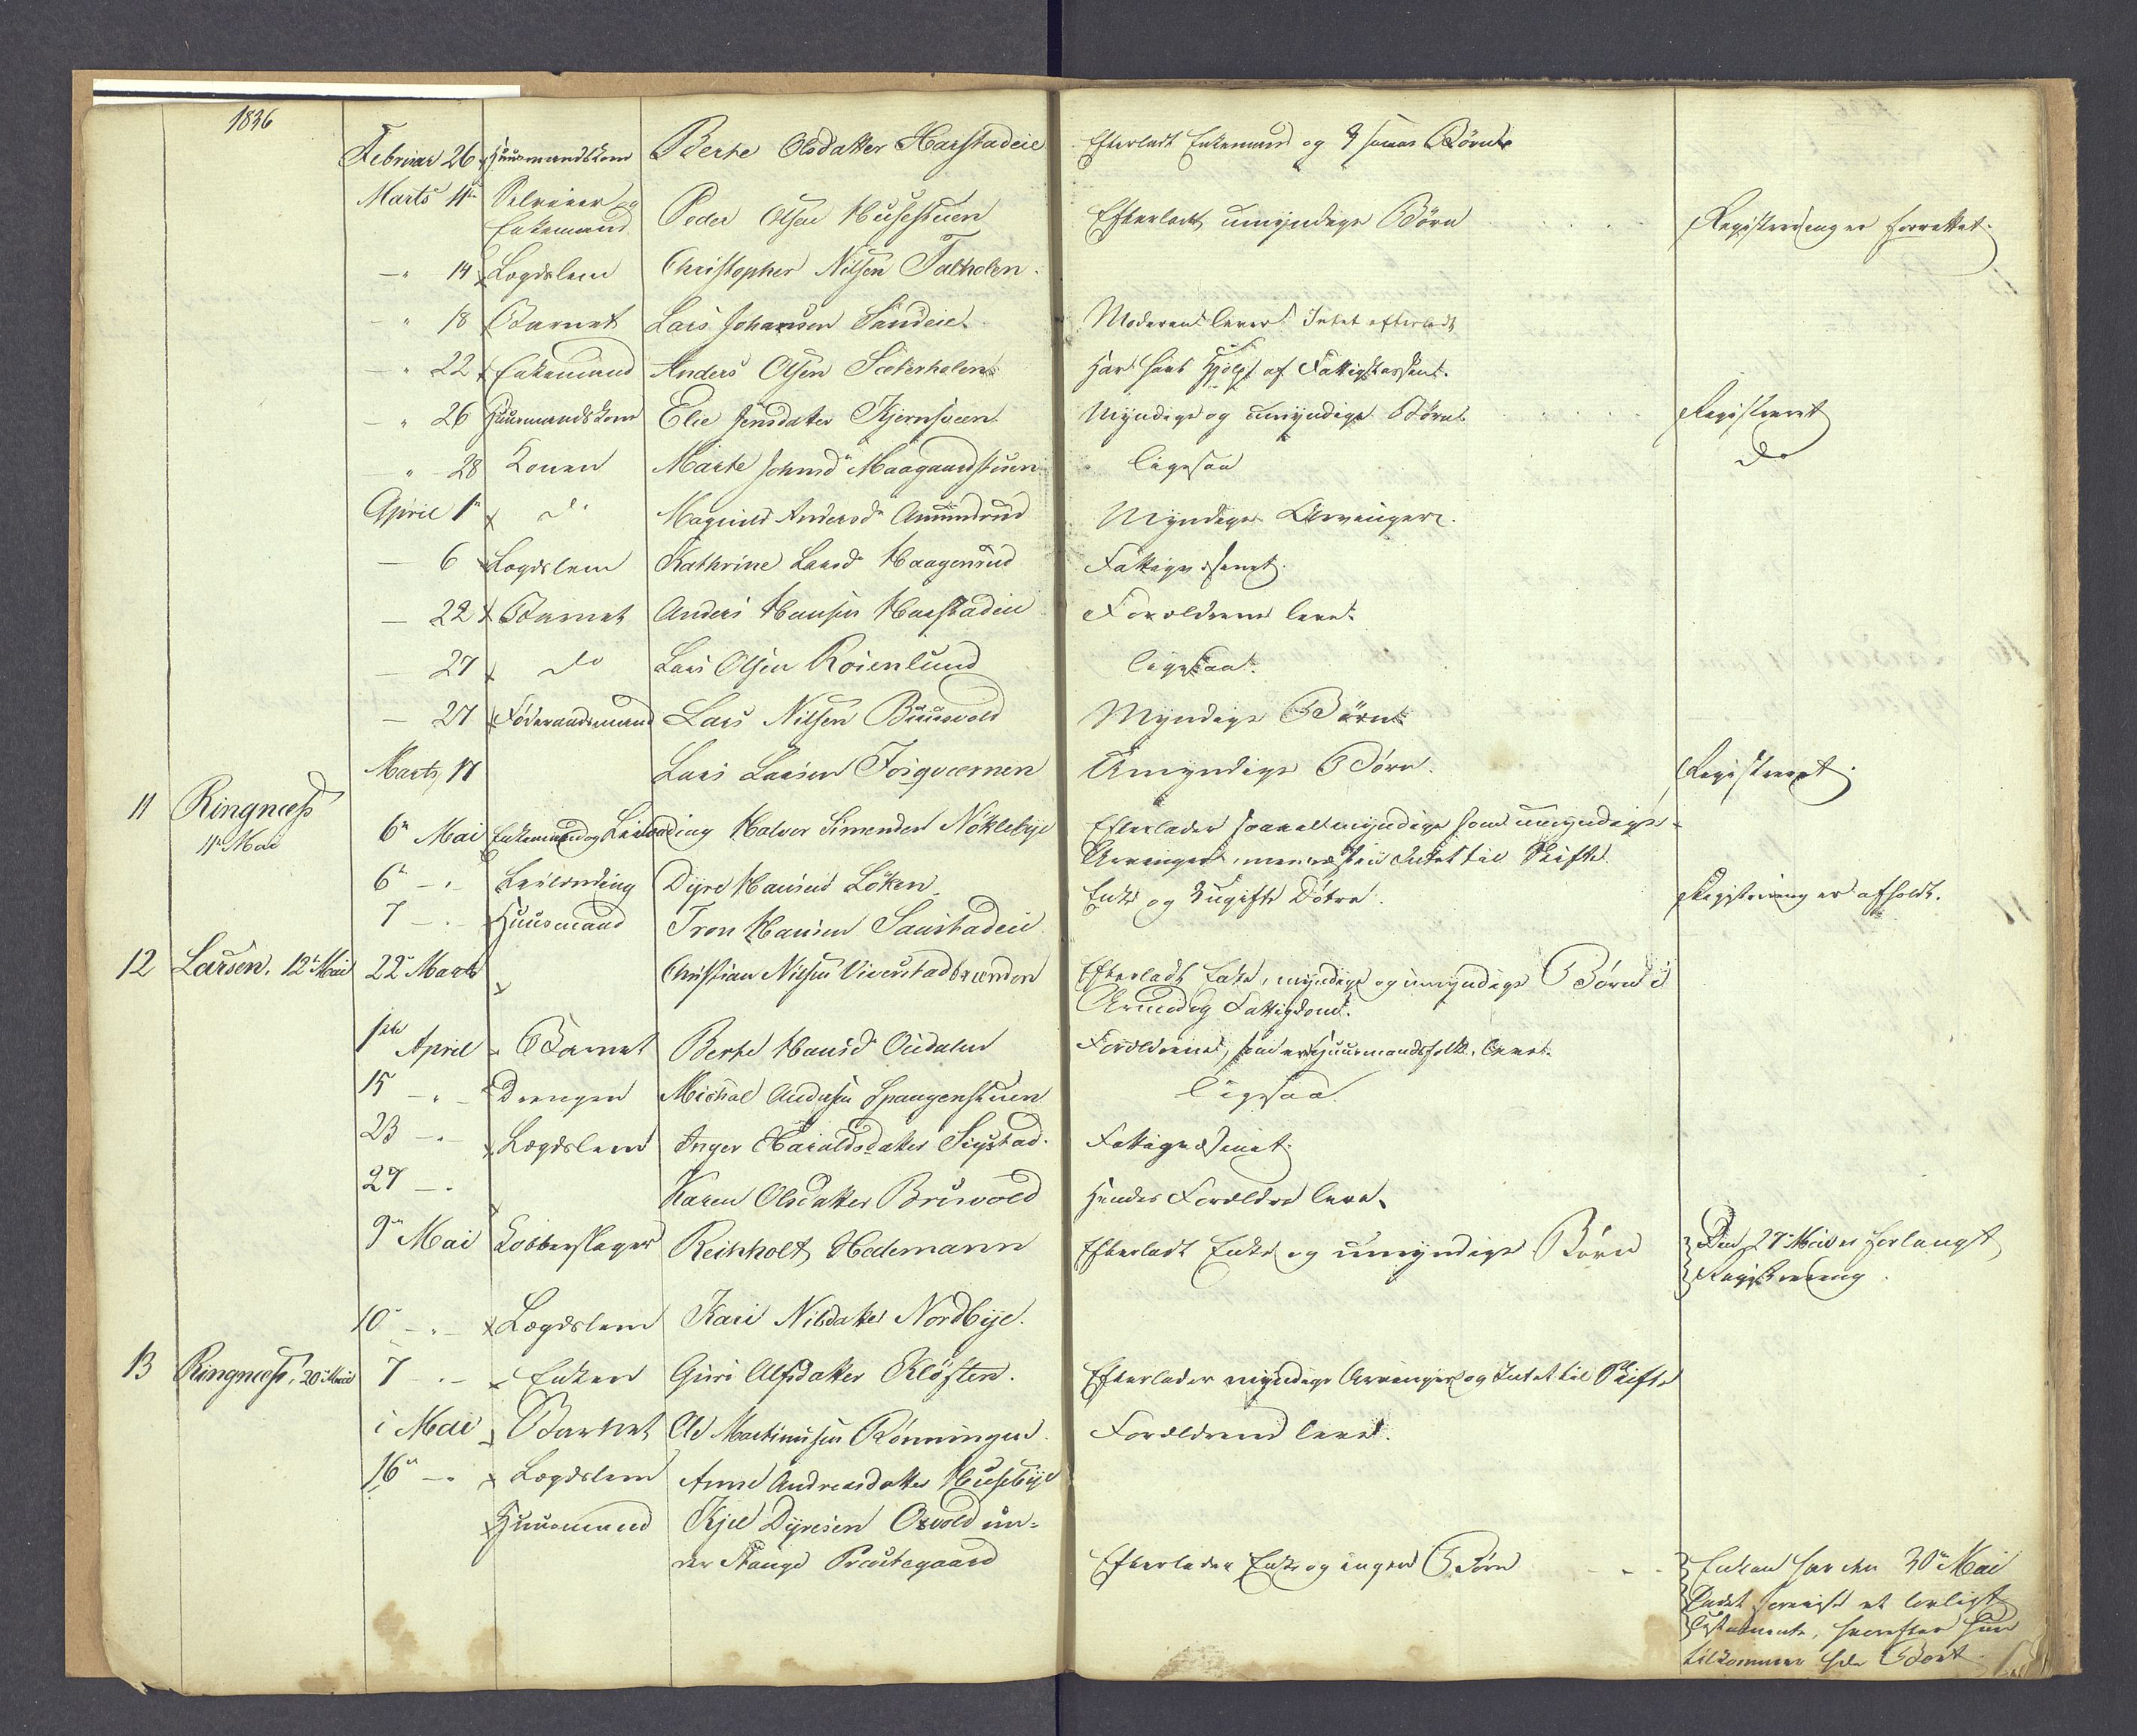 1836
Februar 26 Huusmandskone Berthe Olsdatter Harstadeie Efterladt Enkemand og 3 smaae Børn
Marts 11te Selveier og
Enkemand Peder Olsen Huusestuen Efterladt umyndige Børn Registrering er forrettet.
— " 14 x Lægdslem Christopher Nilsen
— " 18 Barnet Lars Johansen Sandeie Moderen lever Intet efterladt
— " 22 x Enkemand Anders Olsen Sæterholen Har havt Hjelp af Fattigkassen.
— " 26 Huusmandskone Elie Jensdatter Myndige og umyndige Børn Registreret
— " 28 Konen Marte Johnsdr Maagaardstuen ligesaa do
April 1te x do Magnild Andersdr Amundrud Myndige Arvinger.
— 6 x Lægdslem Kathrine Larsdr Haagensrud Fattigvæsenet.
— 22 x Barnet Anders Hansen Harstadeie Forældrene leve.
— 27 x do Lars Olsen Roienlund ligesaa.
— 27 x Føderaadsmand Lars Nilsen Myndige Børn
Marts 17 Lars Larsen Umyndige Børn. Registreret.
11 Ringnæss 6te Mai Enkemand og Leilending Halvor Simensen Nøklebye Efterlader saavel myndige som umyndige
11te Mai Arvinger, men næsten Intet til Skifte.
6te — " Leilending Dyre Hansen Løken Enke og 3 ugifte Døtre. Registrering er afholdt.
7 — " Huusmand Tron Hansen
12 Larsen, 12te Mai 22de Marts x Christian Nilsen Efterladt Enke, myndige og umyndige Børn i
Armod og Fattigdom.
1ste April Barnet Berthe Hansdr Forældrene, som er Huusmandsfolk, leve.
15 — " — Drengen Michael Andersen Spangenstuen ligesaa.
23 — " x Lægdslem Inger Haraldsdatter Sigstad. Fattigvæsenet.
27 — " Karen Olsdatter Hendes Forældre leve.
9de Mai Kobberslager Reinholt Hedemann Efterladt Enke og umyndige Børn Den 27de Mai er forlangt
Registrering.
10de — " — x Lægdslem Kari Nilsdatter Nordbye.
13 Ringnæss, 20de Mai 7 — " — x Enken Guri Alfsdatter Kløften. Efterlader myndige Arvinger og Intet til Skifte
i Mai x Barnet Ole Martinusen Rønningen. Forældrene leve.
16de — " x Lægdslem Anne Andreasdatter Husebye
x Huusmand Kjel Dyresen Osvold un-
der Stange Præstegaard Efterlader Enke og ingen Børn — " — Enken har den 30te Mai
ladet forevise et lovligt
Testamente, hvorefter hun
tilkommer hele Boet